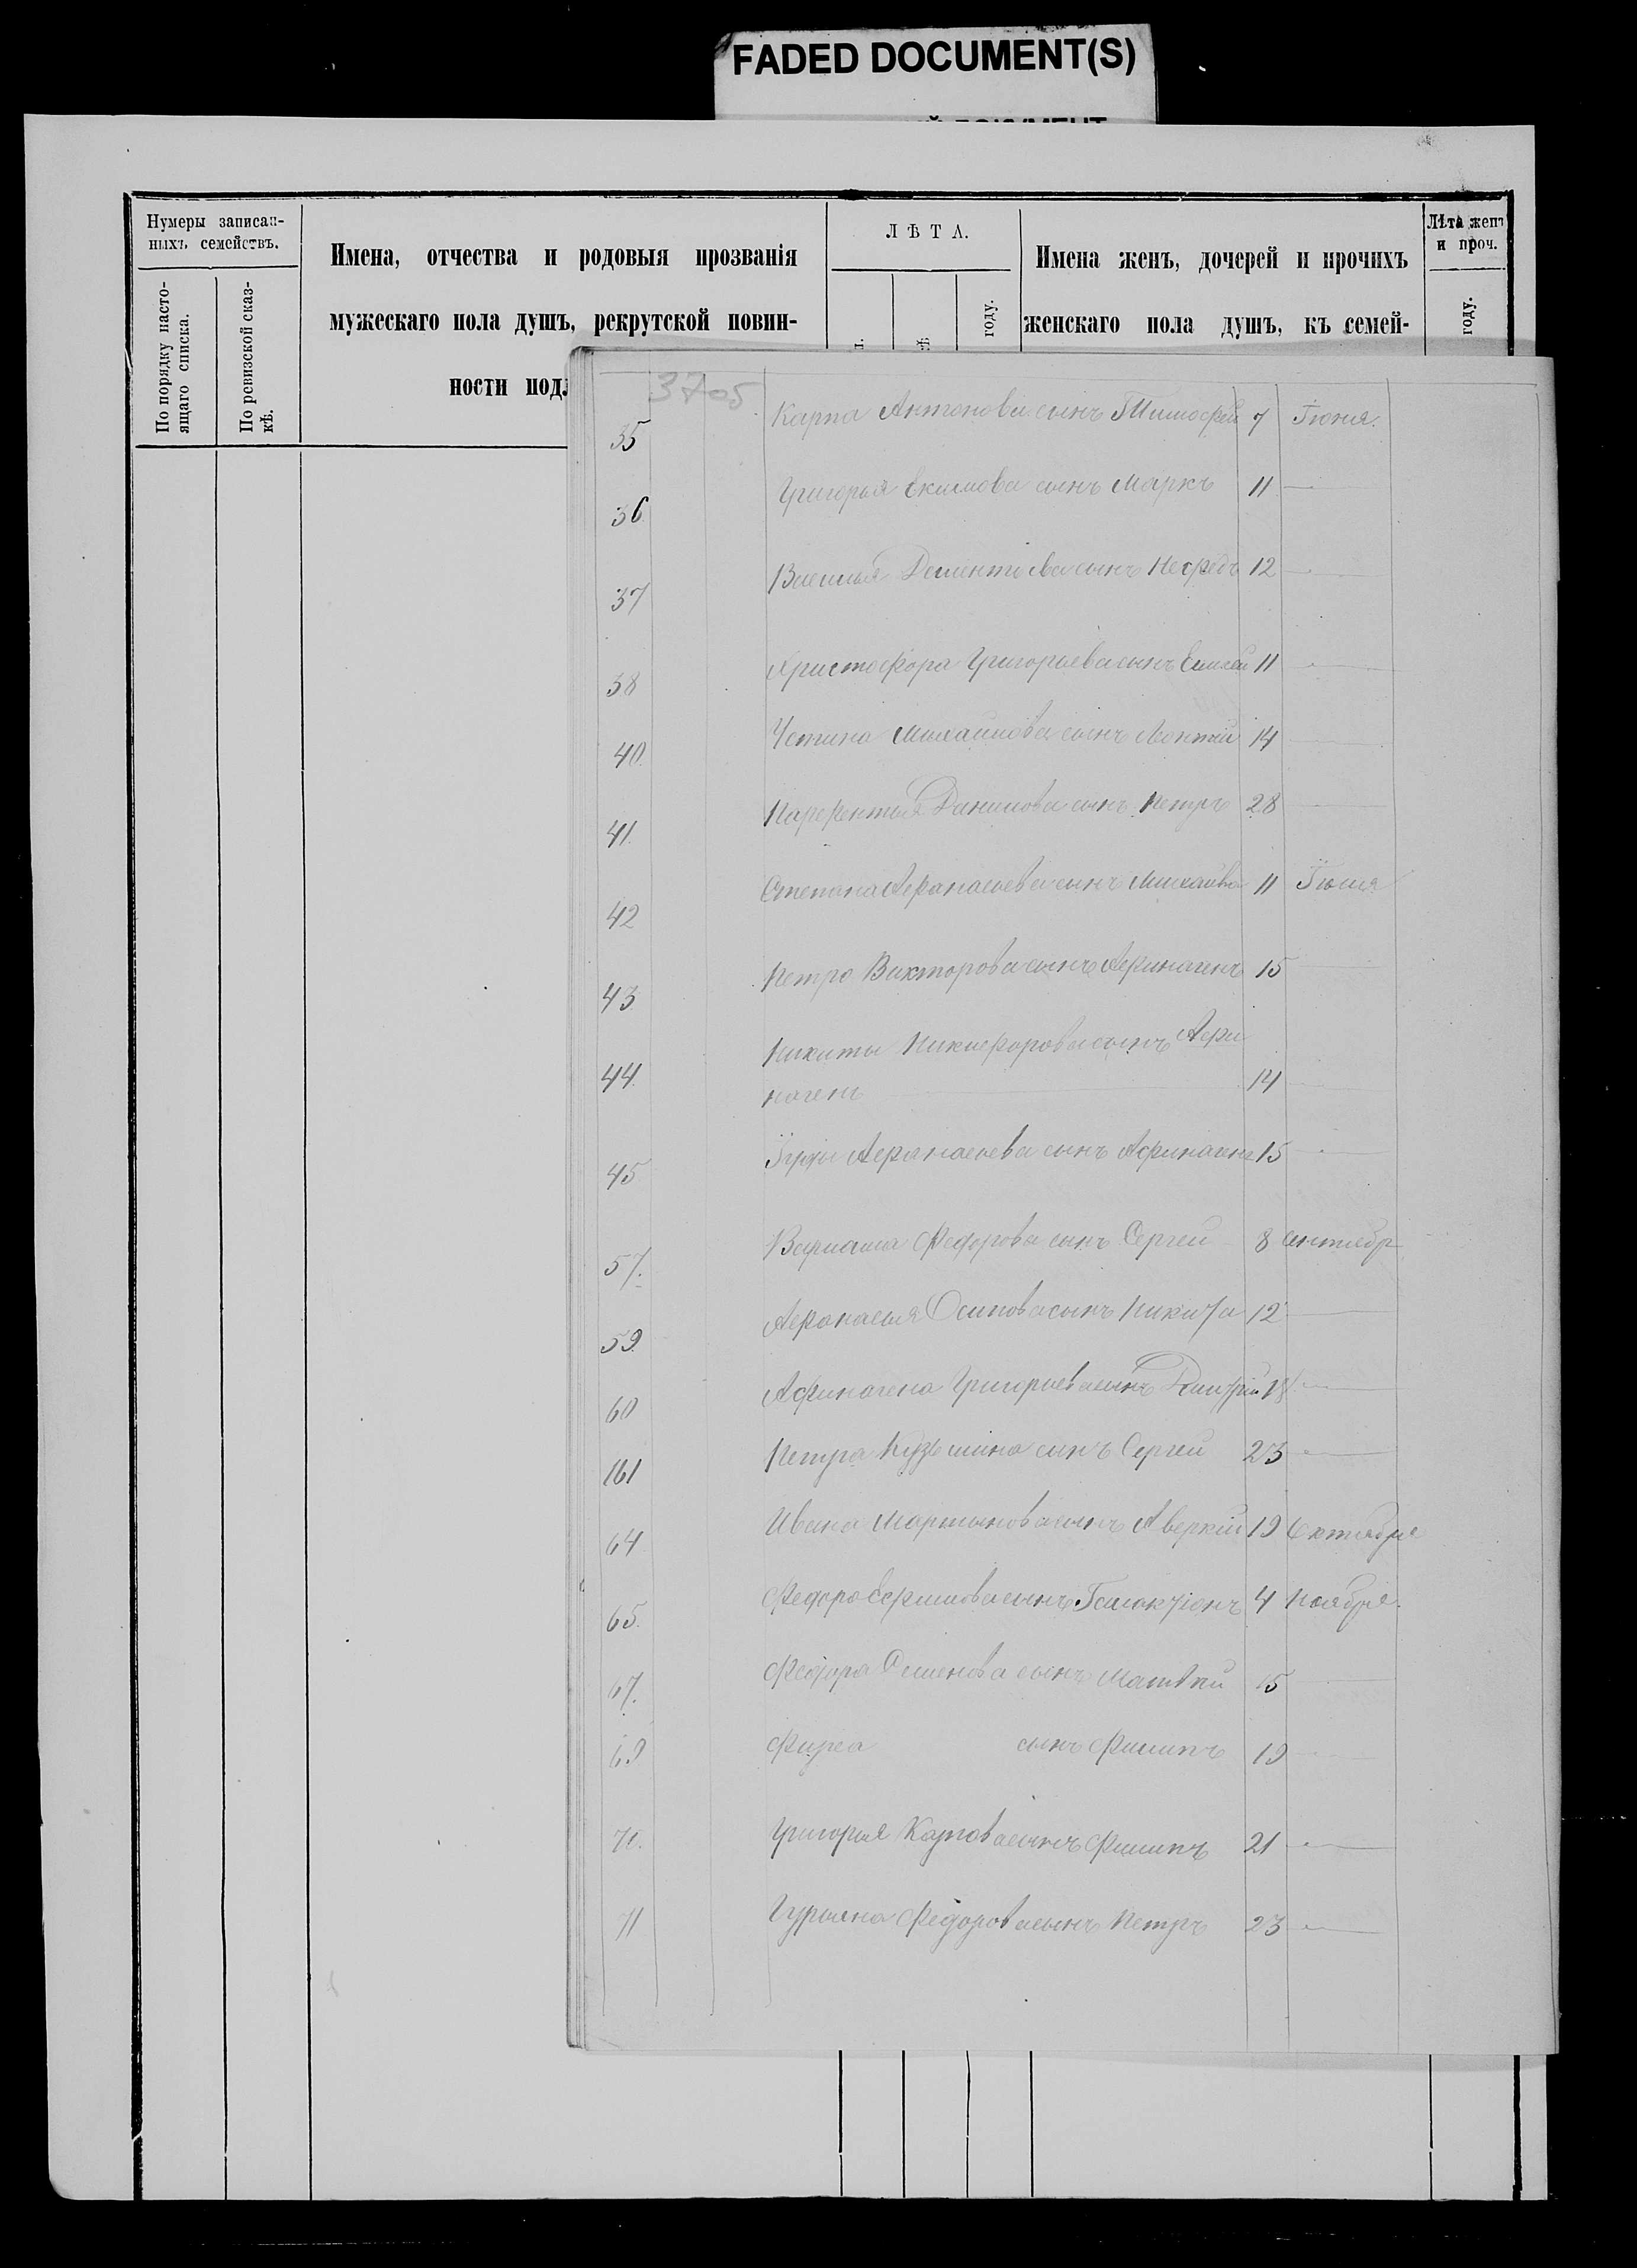 FADED DOCUMENT(S)
Нумеры записан-
ныхъ семействъ.
По порядку насто-
ящаго списка.
По ревизской сказ-
кѣ.
Имена, отчества и родовыя прозванія
мужескаго пола душъ, рекрутской повин-
ности
ЛѢТА.
году.
Имена женъ, дочерей и прочихъ
женскаго пола душъ, къ семей-
Лѣта женъ
и проч.
году.
3705
35 Карпа Антонова сынъ Тимофей 7 Іюня.
36 Григорья Екимова сынъ Маркъ 11 —
37 Василья Дементіева сынъ 12 —
38 Христофора Григорьева сынъ 11 —
40 Устина Михайлова сынъ Леонтій 14 —
41 Парфентья Данилова сынъ Петръ 28 —
42 Степана Афанасьева сынъ Михайла 11 Іюля
43 Петра Викторова сынъ Афиногенъ 15 —
44 Никиты Никифорова сынъ Афи
ногенъ 14 —
45 Іуды Афанасьева сынъ Афиногенъ 15 —
57. Федорова сынъ Сергей 8 Сентябр
59. Афанасья Осипова сынъ Никита 12 —
60 Афиногена Григорьева сынъ Дмитрій —
61 Петра Кузьмина сынъ Сергей 23 —
64 Ивана Мартынова сынъ Аверкій 19 Октября
65. Федора Ефимова сынъ 4 Ноября.
67. Федора Семенова сынъ Матвѣй 15 —
69 Фирса сынъ Филипъ 19 —
70. Григорья Карпова сынъ Филипъ 21 —
71 Гурьяна Федорова сынъ Петръ 23 —